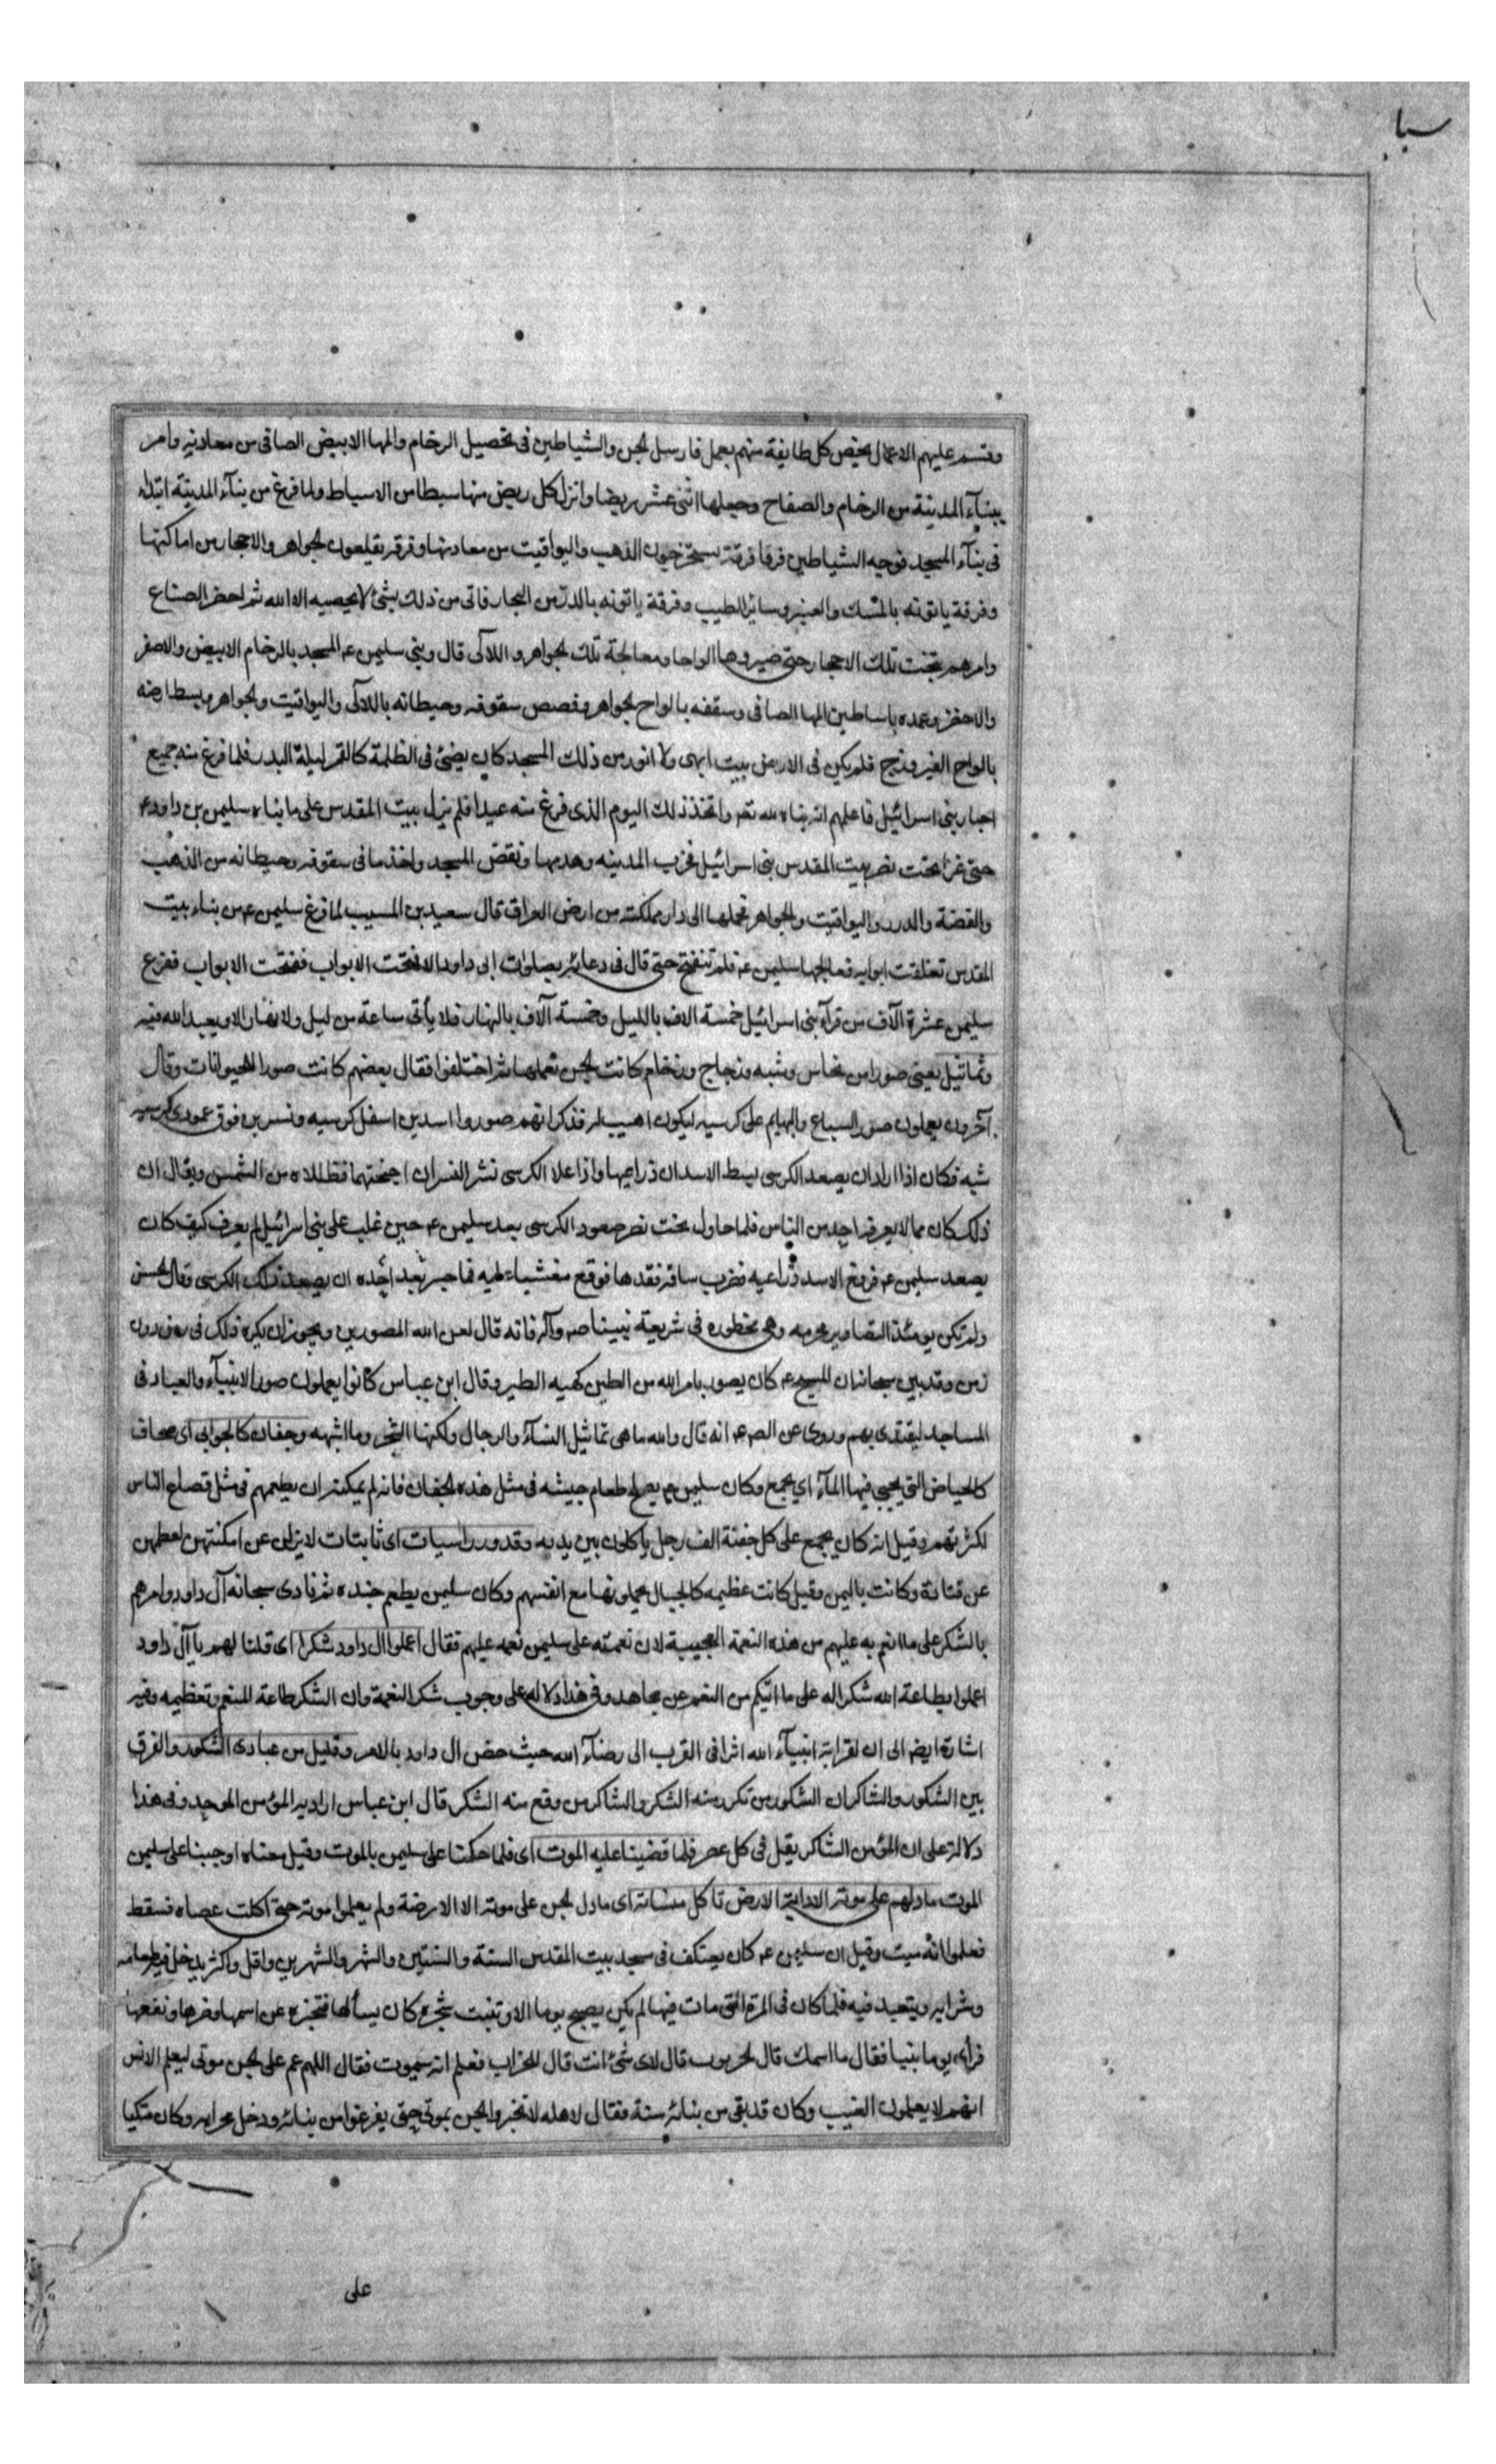 سبا
وقسم عليهم الاعمال يخص كل طايفة منهم بعمل فارسل الجن والشياطين فى تحصيل الرخام والمها الابيض الصافى من معادنه وامر
ببنآء المدينة من الرخام والصفاح وجعلها اثنى عشر ربضا وانزل كل ربض منها سبطا من الاسباط ولما فرغ من بنآء المدينة ابتداء
فى بنآء المسجد فوجه الشياطين فرقا فرقة يستخرجون الذهب واليواقيت من معادنها وفرقة يقلعون الجواهر والاحجار من اماكنها
وفرقة ياتونه بالمسك والعنبر وسائر الطيب وفرقة ياتونه بالدر من البحار فاتى من ذلك بشئ لا يحصيه الا الله ثم احضر الصناع
وامرهم بنحت تلك الاحجار حتى صيروها الواحا ومعالجة تلك الجواهر واللآلى قال وبنى سليمن ع المسجد بالرخام الابيض والاصفر
والاخضر وعمده باساطين المها الصافى وسقفه بالواح الجواهر وفصص سقوفه وحيطانه باللآلى واليواقيت والجواهر وبسط ارضه
بالواح الفيروزج فلم يكن فى الارض بيت ابهى ولا انور من ذلك المسجد كان يضئ فى الظلمة كالقمر ليلة البدر فلما فرغ منه جميع
احبار بنى اسرائيل فاعلمهم انه بناه لله تعه واتخذ ذلك اليوم الذى فرغ منه عيدا فلم يزل بيت المقدس على ما بناه سليمن بن داود ع
حتى غزا بخت نصر بيت المقدس بنى اسرائيل فخرب المدينه وهدمها ونقض المسجد واخذ ما فى سقوفه وحيطانه من الذهب
والفضة والدرر واليواقيت والجواهر فحملها الى دار مملكته من ارض العراق قال سعيد بن المسيب لما فرغ سليمن ع من بناء بيت
المقدس تغلقت ابوابه فعالجها سليمن ع فلم تنفتح حتى قال فى دعائه بصلوات ابى داود الا فتحت الابواب ففتحت الابواب ففرغ
سليمن عشرة آلاف من قرآء بنى اسرائيل خمسة الاف بالليل وخمسة آلاف بالنهار فلا يأتى ساعة من ليل ولا نهار الا ويعبد الله فيه
وتماثيل يعنى صورا من نحاس وشبه وزجاج ورخام كانت الجن تعملها ثم اختلفوا فقال بعضهم كانت صورا للحيوانات وقال
آخرون يعملون صور السباع والبهايم على كرسيه ليكون اهيب له فذكر انهم صوروا اسدين اسفل كرسيه ونسرين فوق عمودى كرسيه
شبه فكان اذا اراد ان يصعد الكرسى بسط الاسدان ذراعيها واذا علا الكرسى نشر النسران اجنحتهما فظللاه من الشمس ويقال ان
ذلك كان مما لا يعرفه احد من الناس فلما حاول بخت نصر صعود الكرسى بعد سليمن ع حين غلب على بنى اسرائيل لم يعرف كيف كان
يصعد سليمن ع فرفع الاسد ذراعيه فضرب ساقه فقدها فوقع مغشيا عليه فما جسر بعد احد ان يصعد ذلك الكرسى قال الحسن
ولم تكن يومئذ التصاوير محرمه وهى محظوره فى شريعة نبينا صم وآله فانه قال لعن الله المصورين ويجوز ان يكره ذلك فى زمن دون
زمن وقد بين سبحانه ان المسيح ع كان يصور بامر الله من الطين كهيه الطير وقال ابن عباس كانوا يعملون صور الانبيآء والعباد فى
المساجد ليقتدى بهم وروى عن الص ع انه قال والله ما هى تماثيل النسآء والرجال ولكنها الشجر وما اشبهه وجفان كالجوابى اى صحاف
كالحياض التى يجبى فيها المآء اى يجمع وكان سليمن ع يصلح طعام جيشه فى مثل هذه الجفان فانه لم يمكنه ان يطعمهم فى مثل قصاع الناس
لكثرتهم وقيل انه كان يجمع على كل جفنة الف رجل ياكلون بين يديه وقدور راسيات اى ثابتات لا يزلن عن امكنتهن لعظمهن
عن قتادة وكانت باليمن وقيل كانت عظيمه كالجبال يحملونها مع انفسهم وكان سليمن يطعم جنده ثم نادى سبحانه آل داود وامرهم
بالشكر على ما انعم به عليهم من هذه النعمة العجيبة لان نعمته على سليمن نعمه عليهم فقال اعملوا ال داود شكرا اى قلنا لهم يا آل داود
اعملوا بطاعة الله شكرا له على ما اتيكم من النعم عن مجاهد وفى هذا دلاله على وجوب شكر النعمة وان الشكر طاعة المنعم وتعظيمه وفيه
اشارة ايضه الى ان لقرابة انبيآء الله اثرا فى القرب الى رضآء الله حيث خص ال داود بالامر وقليل من عبادى الشكور والفرق
بين الشكور والشاكر ان الشكور من تكرر منه الشكر والشاكر من وقع منه الشكر قال ابن عباس اراد به المؤمن الموحد وفى هذا
دلالة على ان المؤمن الشاكر يقل فى كل عصر فلما قضينا عليه الموت اى فلما حكمنا على سليمن بالموت وقيل معناه اوجبنا على سليمن
الموت ما دلهم على موته الا دابة الارض تاكل منساته اى ما دل الجن على موته الا الارضة ولم يعلموا موته حتى اكلت عصاه فسقط
فعلموا انه ميت وقيل ان سليمن ع كان يعتكف فى مسجد بيت المقدس السنة والسنتين والشهر والشهرين واقل واكثر يدخل فيه طعامه
وشرابه ويتعبد فيه فلما كان فى المرة التى مات فيها لم يكن يصبح يوما الا وتنبت شجره كان يسألها فتخبره عن اسمها وضرها ونفعها
فرأى يوما نبتا فقال ما اسمك قال الخرنوب قال لاى شئ انت قال للخراب فعلم انه سيموت فقال اللهم عم على الجن موتى ليعلم الانس
انهم لا يعلمون الغيب وكان قد بقى من بنائه سنة فقال لاهله لا تخبروا الجن بموتى حتى يفرغوا من بنائه ودخل محرابه وكان متكيا
على